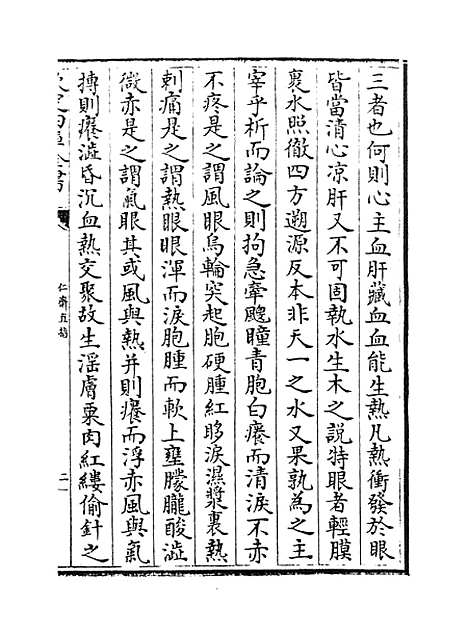 三者也何則心主血肝藏血血能生熱凡熱衝發於眼
皆當清心凉肝又不可固執水生木之説特眼者輕膜
裹水照徹四方遡源反本非天一之水又果孰為之主
宰乎析而論之則拘急牽飕瞳青胞白癢而清淚不赤
不疼是之謂風眼烏輪突起胞硬腫紅眵淚濕漿裹熱
刺痛是之謂熱眼眼渾而淚胞腫而軟上壅朦朧酸澁
微赤是之謂氣眼其或風與熱并則癢而浮赤風與氣
搏則癢澁昏沉血熱交聚故生淫膚粟肉紅縷偷針之
仁齋直指